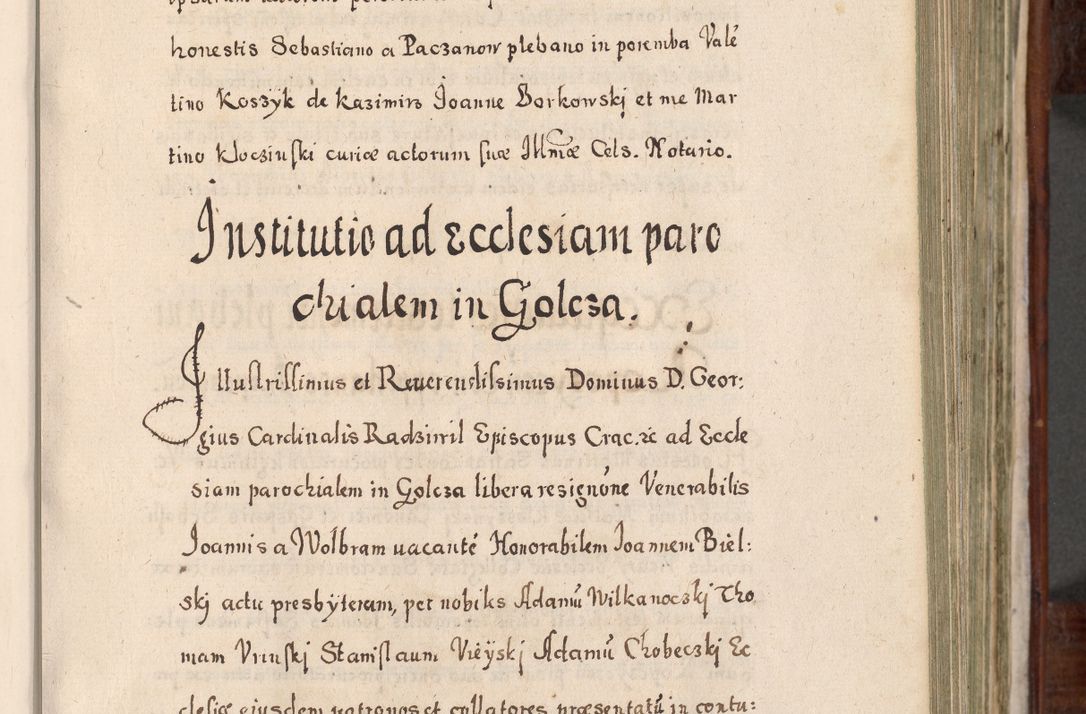 honestis Sebastiano a Paczanow plebano in poremba Valē
tino Koszyk de Kazimirz Joanne Borkowskj et me Mar
tino Kloczinſki curiæ actorum ſuæ Illmæ Cels. Notario.
Institutio ad Ecclesiam paro
chialem in Golcza.
Illuſtriſſimus et Reuerendiſsimus Dominus D. Geor:
gius Cardinalis Radziwil Episcopus Crac. &c ad Eccle
siam parochialem in Golcza libera resignōne Venerabilis
Joannis a Wolbram uacantē Honorabilem Joannem Biel:
skj actu presbÿterum, per nobiles Adamū Wilkanoczkj Tho
mam Vrinſkj Staniſlaum Vieÿskj Adamū Chobeczkj Ec
clesiæ eiusdem patronos et collatores præsentatū in contu: